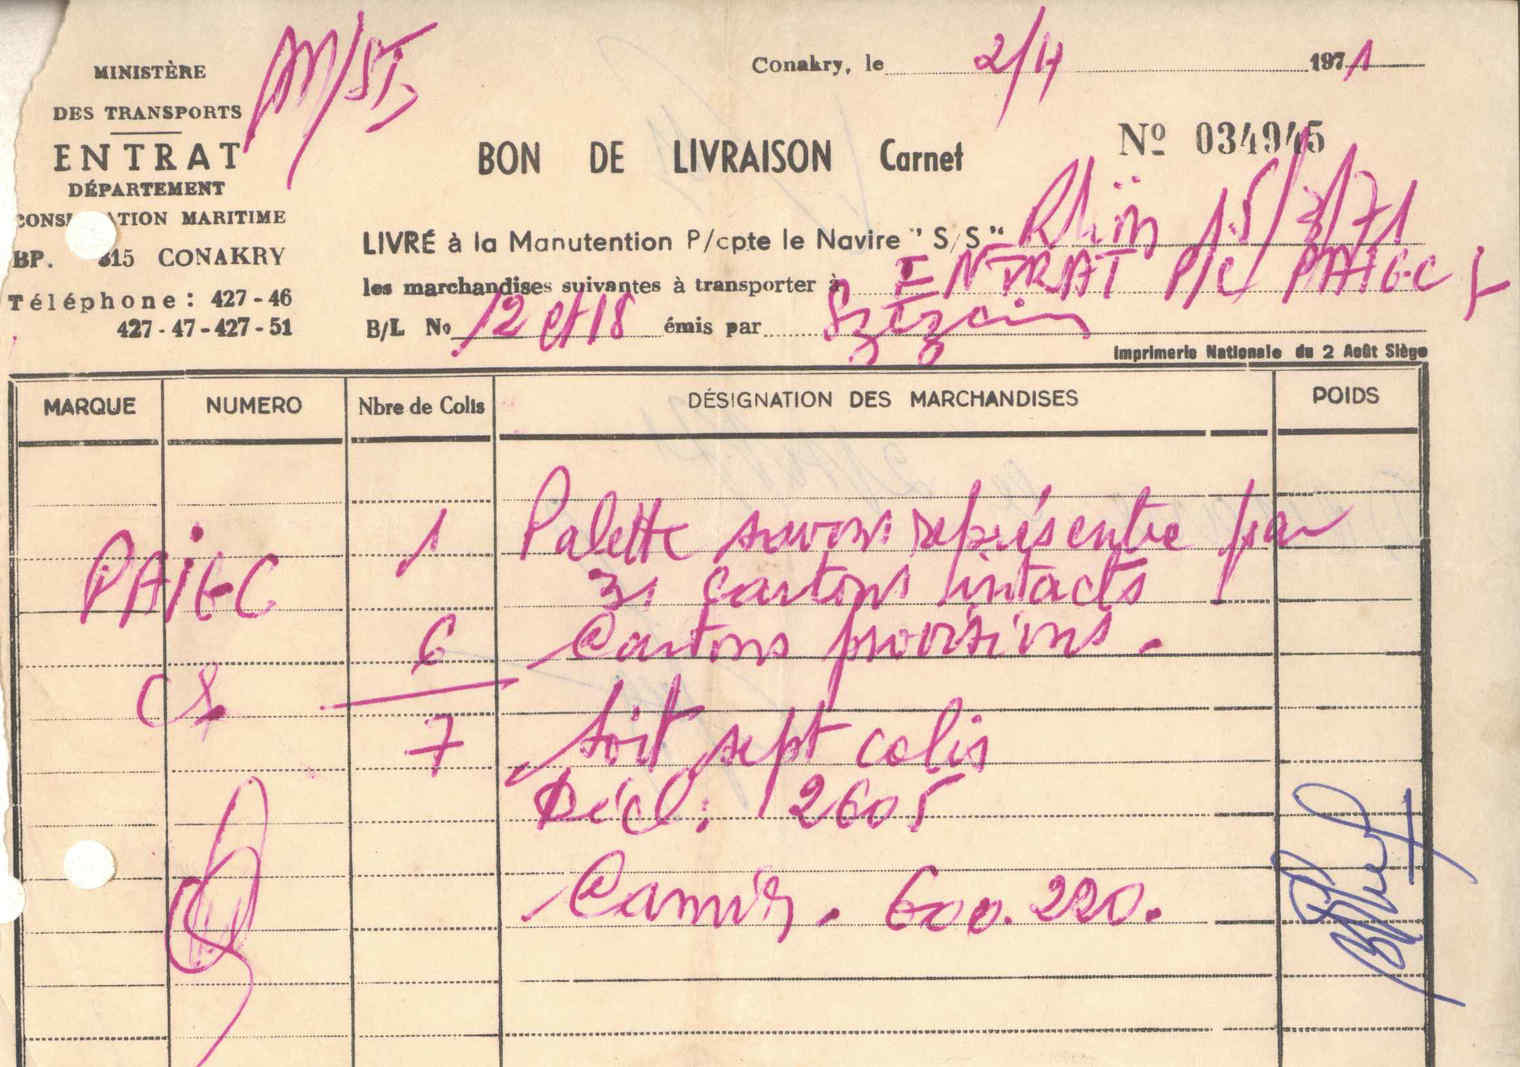 MINISTÈRE
DES TRANSPORTS
ENTRAT
DÉPARTEMENT
MARITIME
BP. 815 CONAKRY
Téléphone : 427 - 46
427 - 47 - 427 - 51
Conakry, le 2/4 1971
BON DE LIVRAISON Carnet
Nº 034945
LIVRÉ à la Manutention P/cpte le Navire "S/S" 15/3/71
les marchandises suivantes à transporter à ENTRAT P/C PAIGC
B/L No 12 et 18 émis par
Imprimerie Nationale du 2 Août Siège
MARQUE NUMERO Nbre de Colis DÉSIGNATION DES MARCHANDISES POIDS
1 Palette savon représentée par
PAIGC 31 cartons intacts
6 Cartons provisions.
7 Soit sept colis
Décl: 2605
Camion. 600.220.